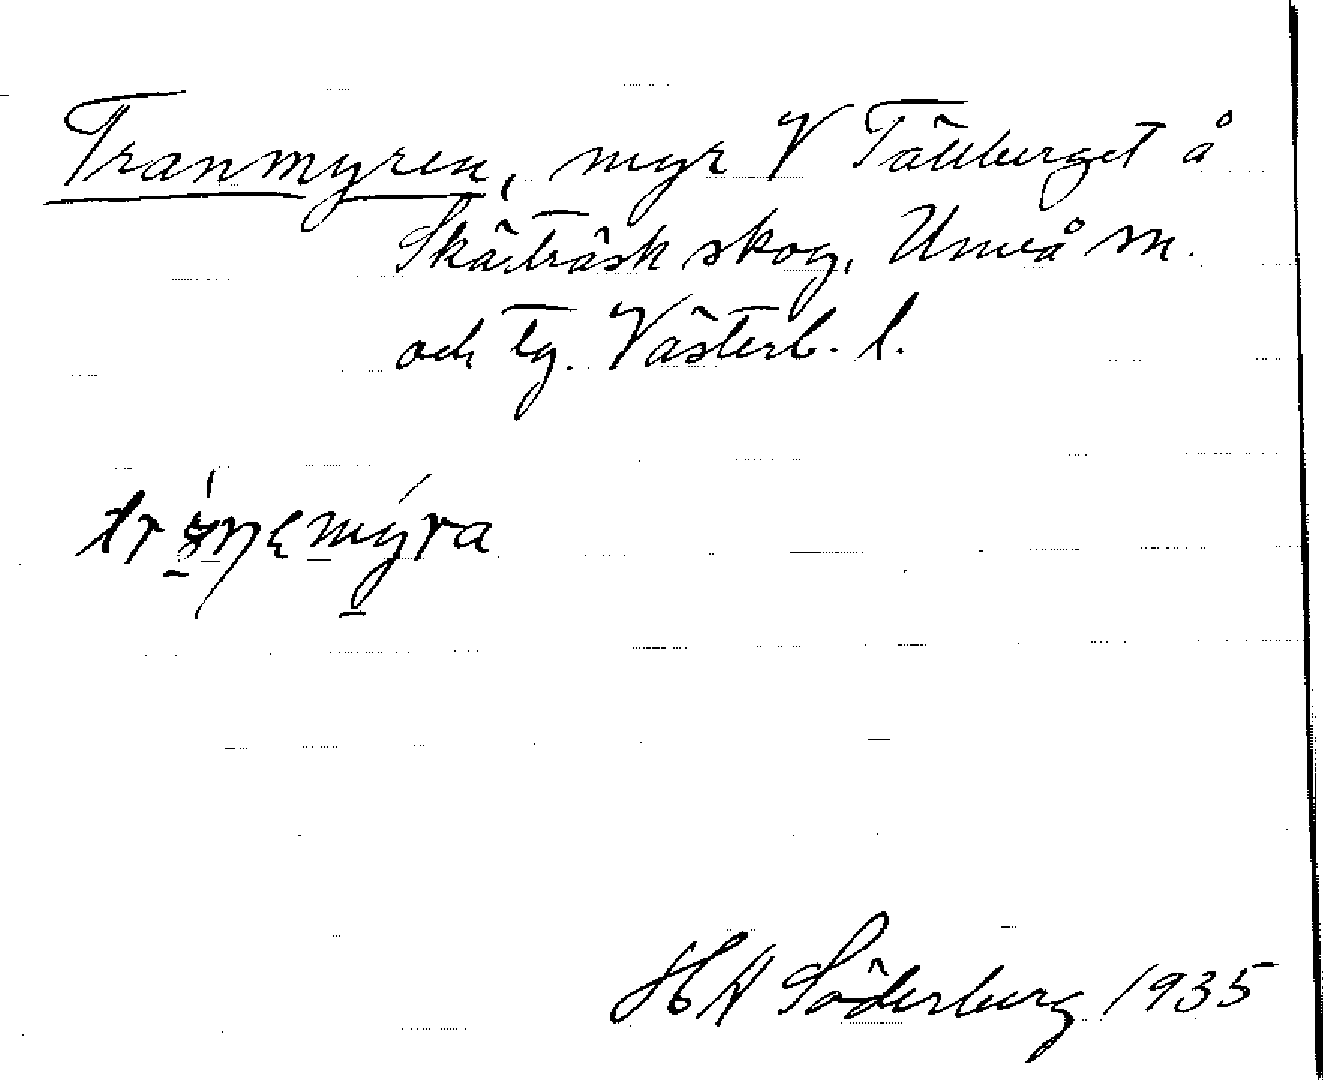 Tranmyren, myr V Tällberget å
Skärträsk skog, Umeå sn.
och tg. Västerb. l.
HH Söderberg 1935